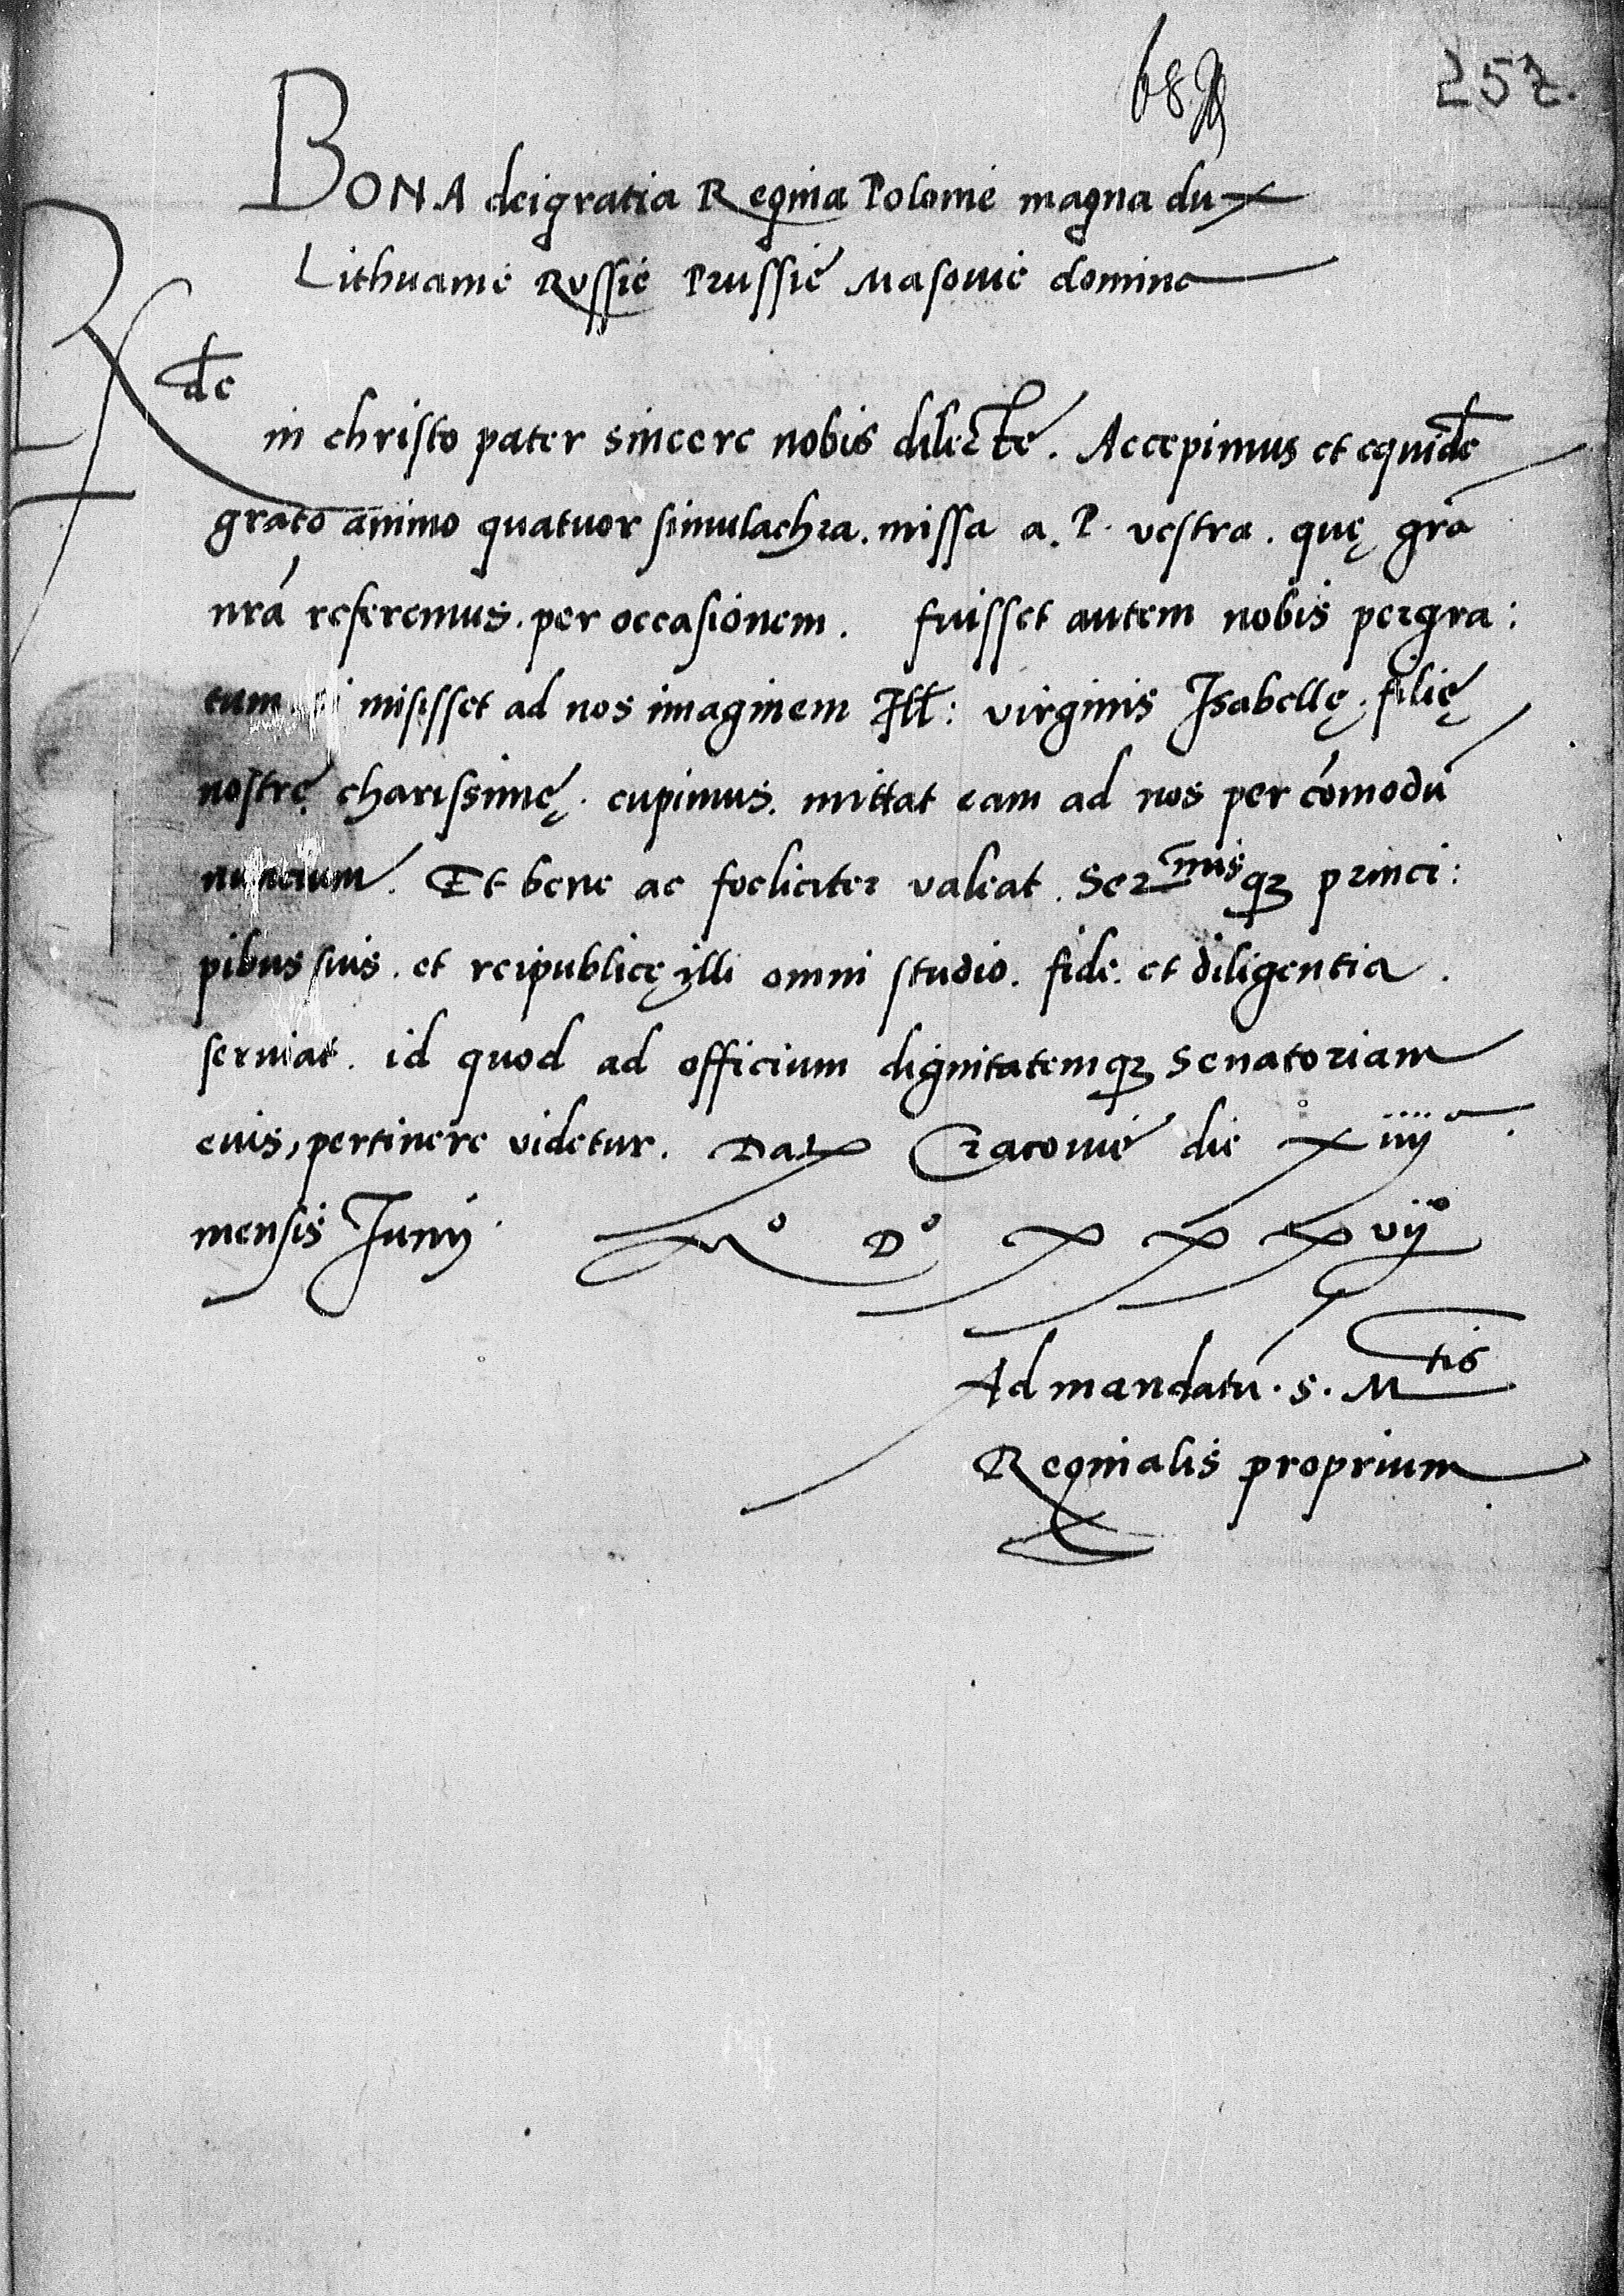 257.
BONA dei gratia Regina Polonie magna dux
Lithuanie Russie Prussie Masovie domina
Rde
in christo pater sincere nobis dilecte. Accepimus et equidē
grato animo quatuor simulachra. missa a. P. vestra. quę grā
nrā referemus. per occasionem. fuisset autem nobis pergra:
tum misisset ad nos imaginem Ill: virginis Isabellę. filię
nostrę charissimę. cupimus. mittat eam ad nos per cōmodū
nuncium. Et bene ac foeliciter valeat. Sermisqȝ princi:
pibus suis. et reipublicę illi omni studio. fide. et diligentia.
serviat. id quod ad officium dignitatemqȝ senatoriam
eius, pertinere videtur. Dat Cracovie die xiiij
mensis Junij. Mº Dº xxxvijº
Ad mandatū. S. Mtis
Reginalis proprium